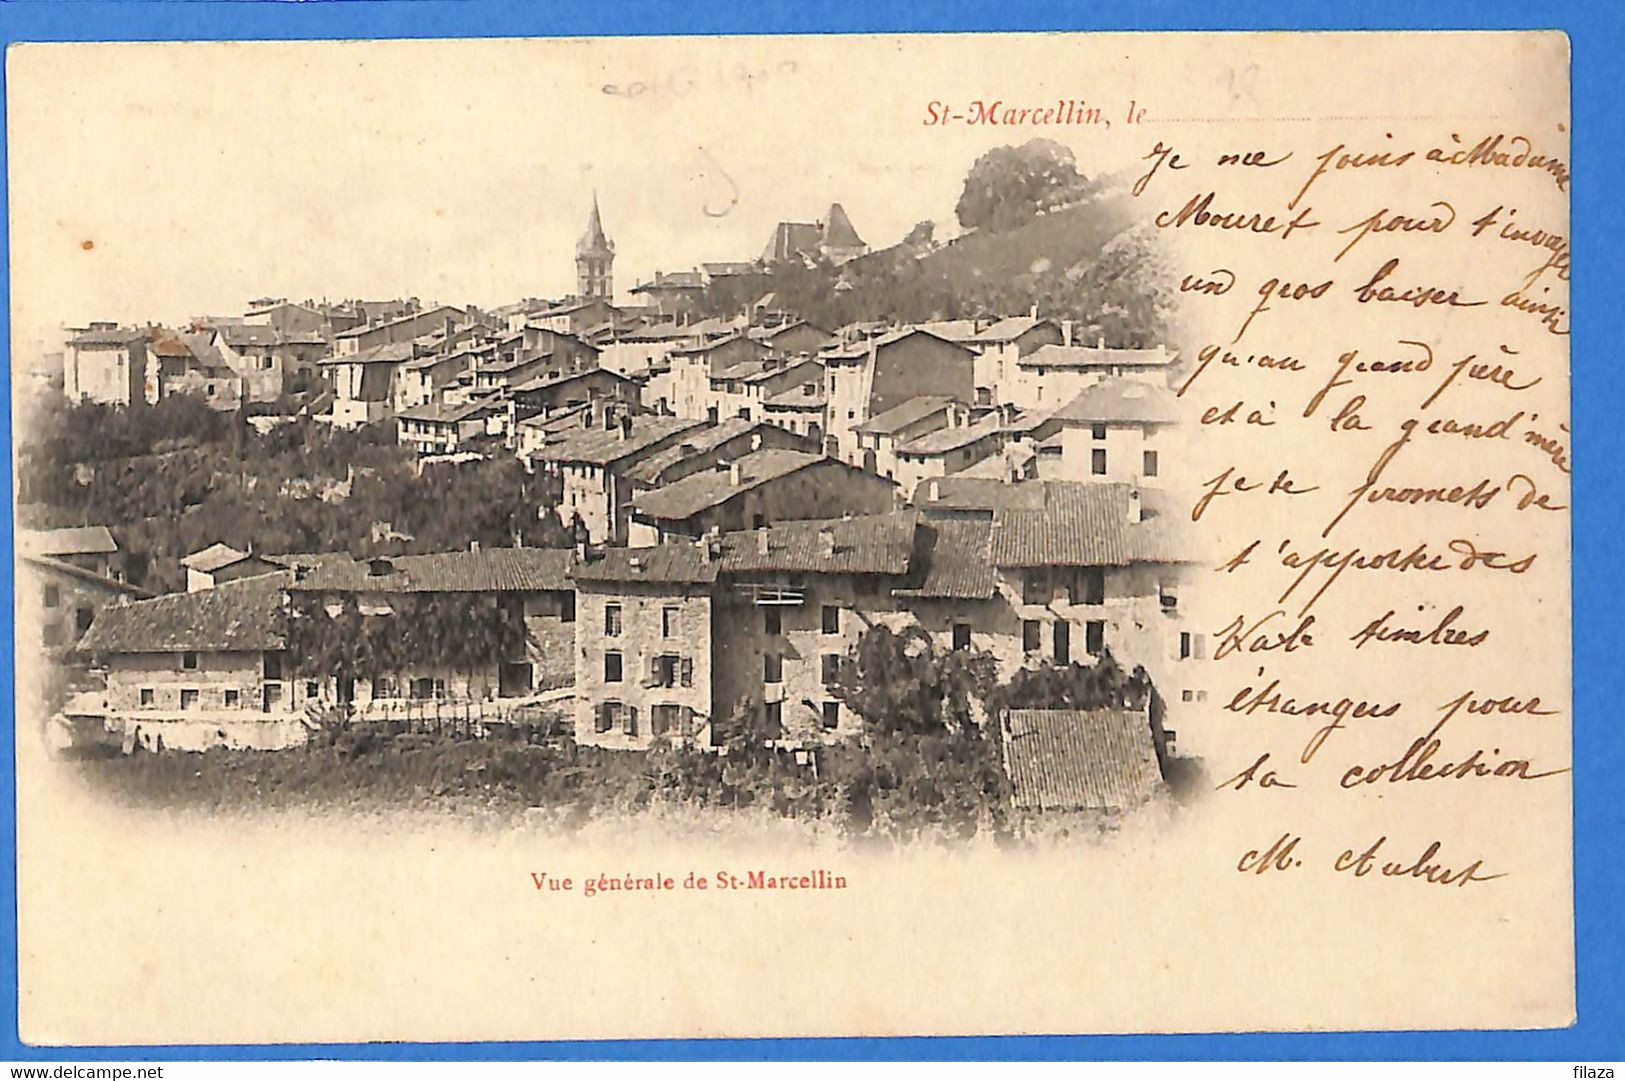 St-Marcellin, le
Je me joins à Madame
Mouret pour t'invoyer
un gros baiser ainsi
qu'au grand père
et à la grand'mère
je te promets de
t'apporter des
timbres
étrangers pour
ta collection
M. Aubert
Vue générale de St-Marcellin
delcampe.net
filaza